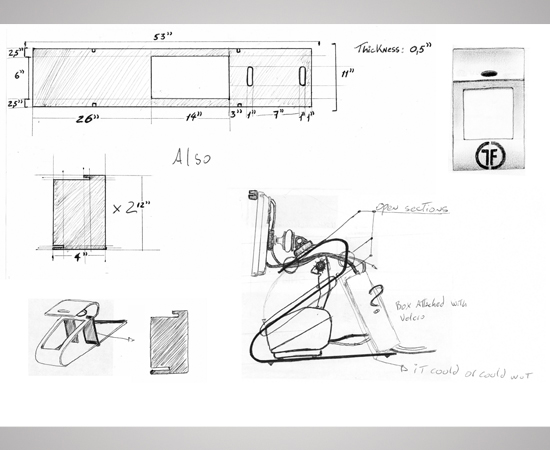 53"
Thickness: 0,5"
2,5"
6"
11"
2,5"
26"
14"
3"
1"
7"
1"
1"
Also
x 2
12"
4"
open sections
Box Attached with
Velcro
iT could or could not